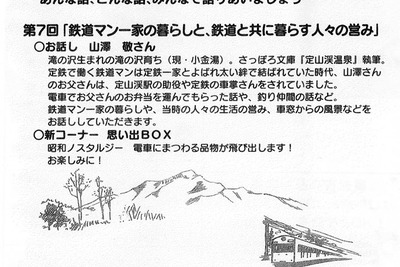 あんな話、こんな話、みんなで語りあいましょう
第7回「鉄道マン一家の暮らしと、鉄道と共に暮らす人々の営み」
○お話し 山澤 敬さん
滝の沢生まれの滝の沢育ち（現・小金湯）。さっぽろ文庫『定山渓温泉』執筆。
定鉄で働く鉄道マンは定鉄一家とよばれ太い絆で結ばれていた時代、山澤さん
のお父さんは、定山渓駅の助役や定鉄の車掌さんをされていました。
電車でお父さんのお弁当を運んでもらった話や、釣り仲間の話など。
鉄道マン一家の暮らしや、当時の人々の生活の営み、車窓からの風景などを
お話ししていただきます。
○新コーナー 思い出BOX
昭和ノスタルジー 電車にまつわる品物が飛び出します！
お楽しみに！